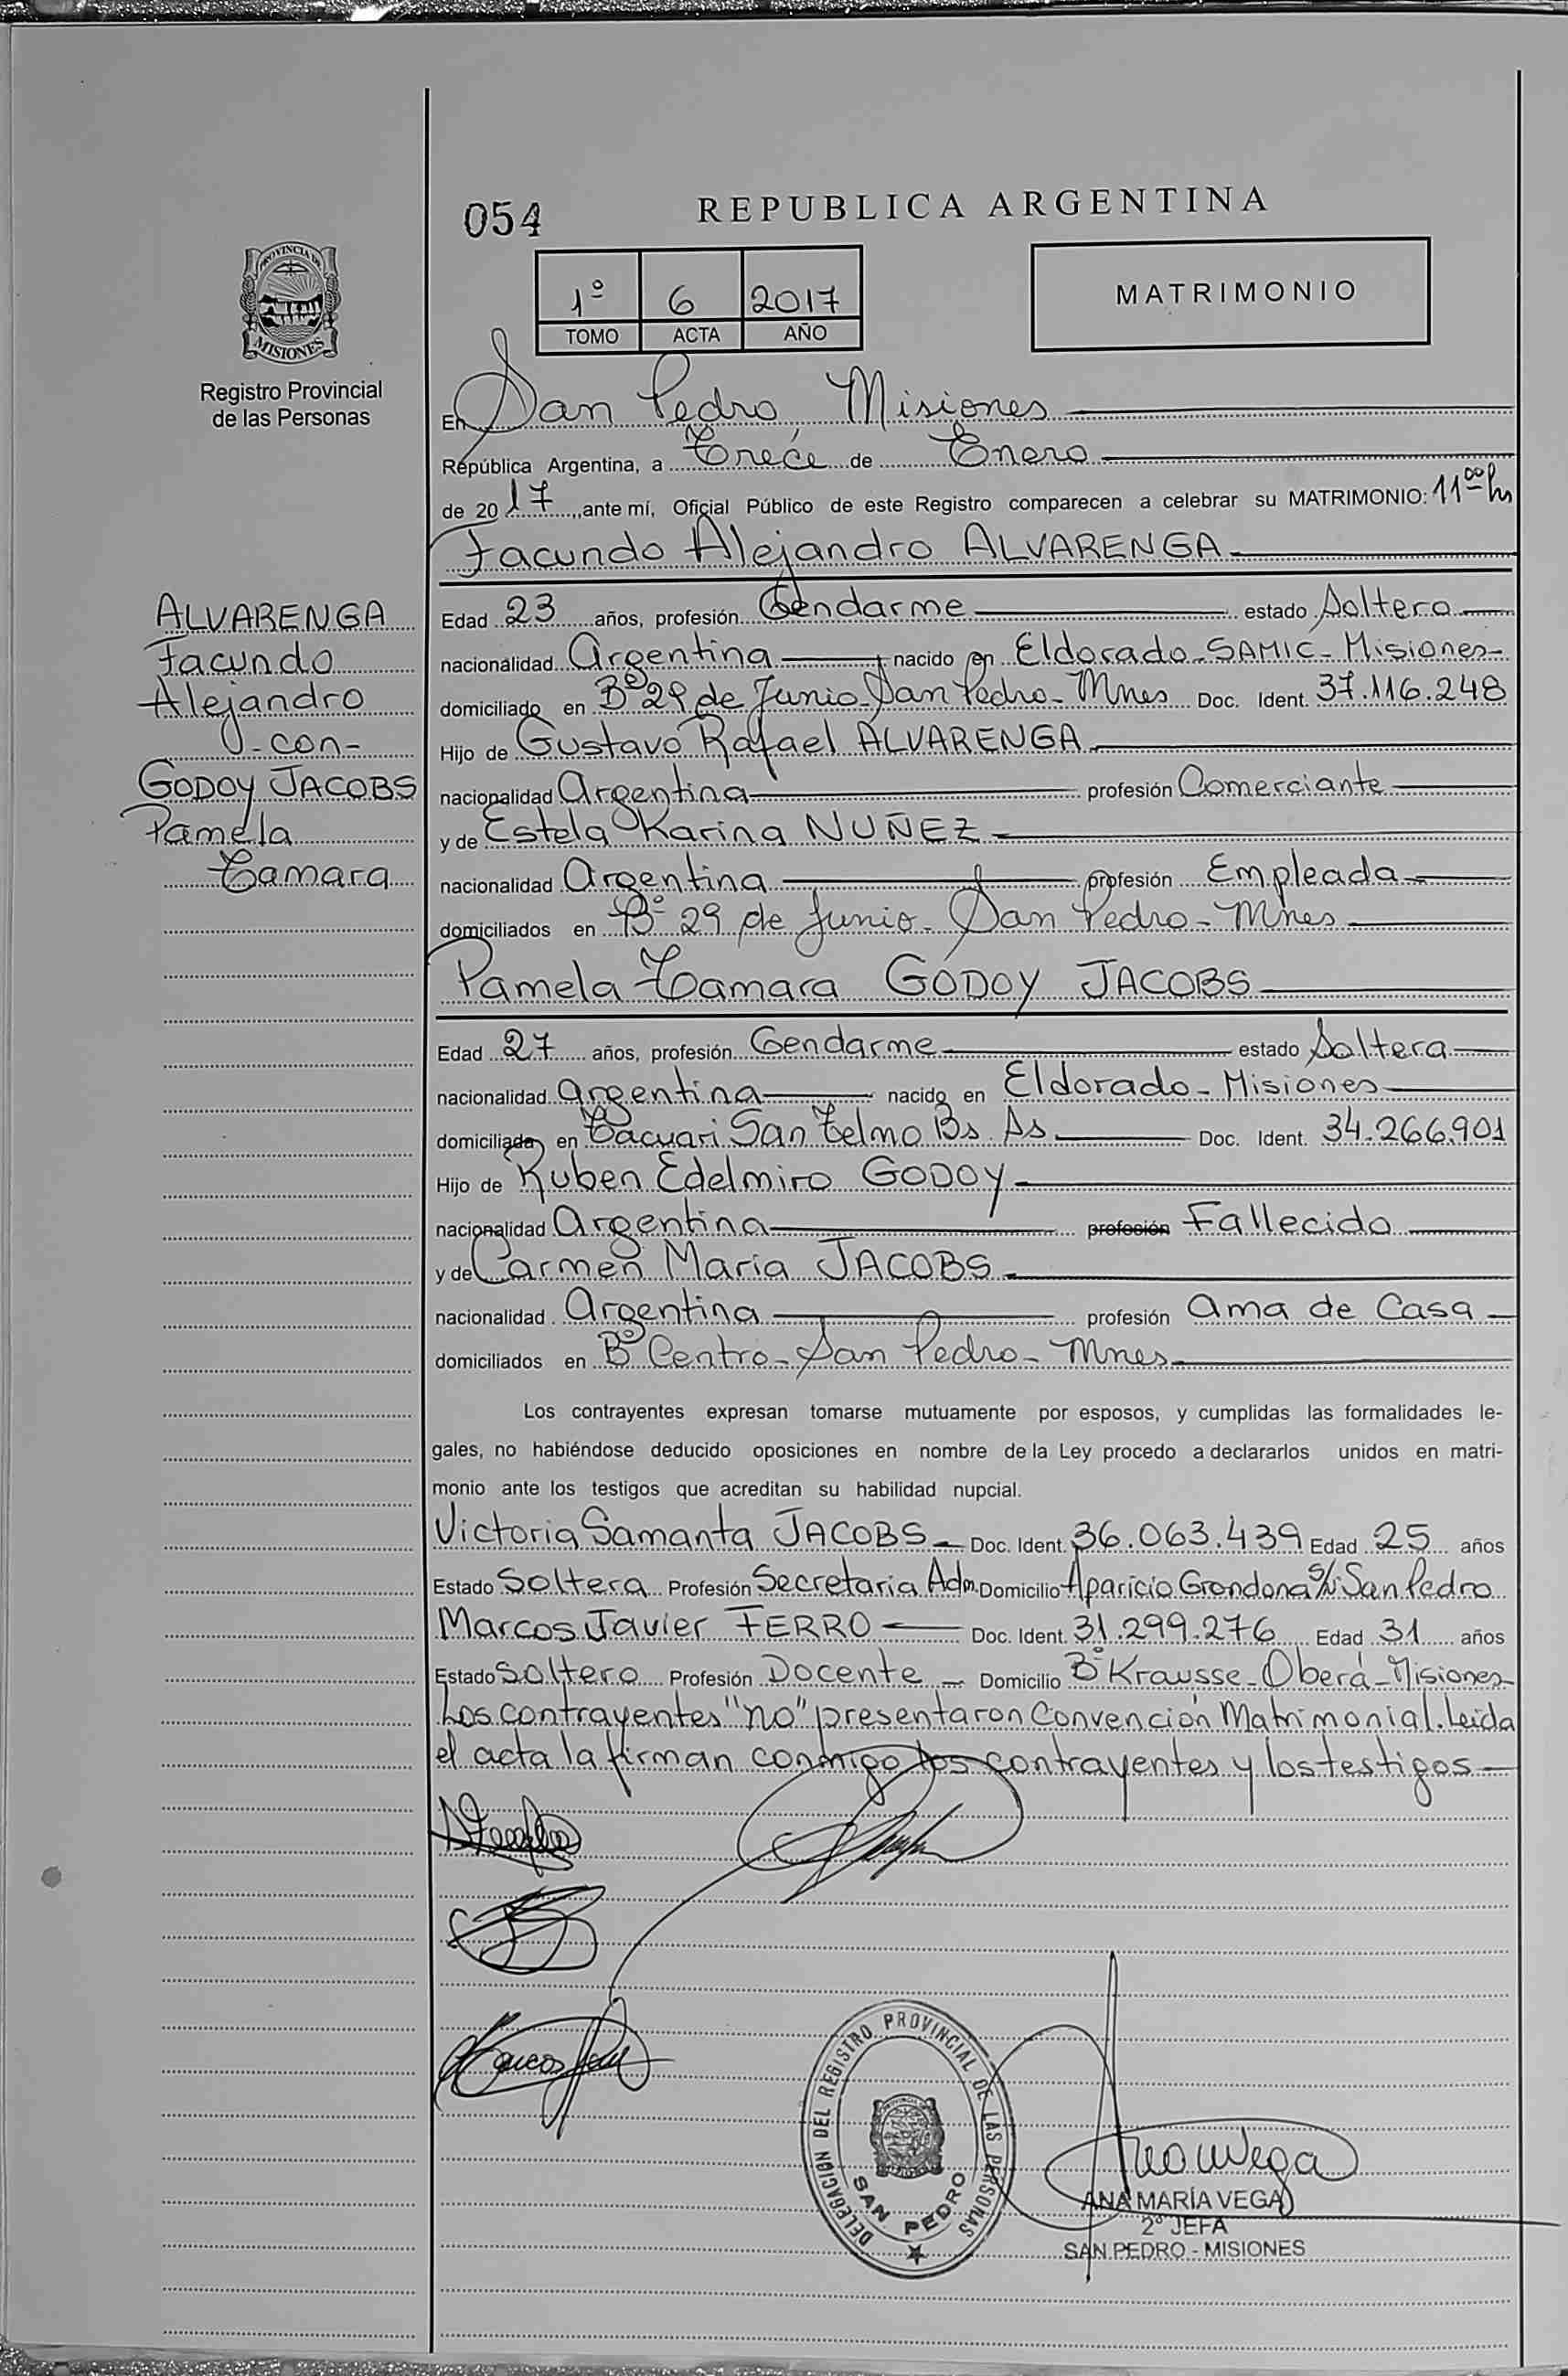 054
REPUBLICA ARGENTINA
PROVINCIA DE
MISIONES
Registro Provincial
de las Personas
1º 6 2017
TOMO ACTA AÑO
MATRIMONIO
En San Pedro, Misiones
República Argentina, a Trece de Enero
de 2017, ante mí, Oficial Público de este Registro comparecen a celebrar su MATRIMONIO: 11 00 hs
Facundo Alejandro ALVARENGA
ALVARENGA
Facundo
Alejandro
-con-
GODOY JACOBS
Pamela
Tamara
Edad 23 años, profesión Gendarme estado Soltero
nacionalidad Argentina nacido en Eldorado-SAMIC-Misiones-
domiciliado en Bº 29 de Junio-San Pedro-Mnes Doc. Ident. 37.116.248
Hijo de Gustavo Rafael ALVARENGA
nacionalidad Argentina profesión Comerciante
y de Estela Karina NUÑEZ
nacionalidad Argentina profesión Empleada
domiciliados en Bº 29 de Junio- San Pedro-Mnes
Pamela Tamara GODOY JACOBS
Edad 27 años, profesión Gendarme estado Soltera
nacionalidad Argentina nacido en Eldorado-Misiones
domiciliada en Tacuari San Telmo Bs. As Doc. Ident. 34.266.901
Hijo de Ruben Edelmiro GODOY
nacionalidad Argentina profesión Fallecido
y de Carmen Maria JACOBS
nacionalidad Argentina profesión ama de Casa
domiciliados en Bº Centro-San Pedro-Mnes
Los contrayentes expresan tomarse mutuamente por esposos, y cumplidas las formalidades le-
gales, no habiéndose deducido oposiciones en nombre de la Ley procedo a declararlos unidos en matri-
monio ante los testigos que acreditan su habilidad nupcial.
Victoria Samanta JACOBS Doc. Ident. 36.063.439 Edad 25 años
Estado Soltera Profesión Secretaria Adm. Domicilio Aparicio Grondona S/Nº San Pedro
Marcos Javier FERRO Doc. Ident. 31.299.276 Edad 31 años
Estado Soltero Profesión Docente Domicilio Bº Krausse-Oberá-Misiones
Los contrayentes "no" presentaron Convención Matrimonial. Leida
el acta la firman conmigo los contrayentes y los testigos
DELEGACION DEL REGISTRO PROVINCIAL DE LAS PERSONAS
SAN PEDRO
ANA MARÍA VEGA
2º JEFA
SAN PEDRO - MISIONES